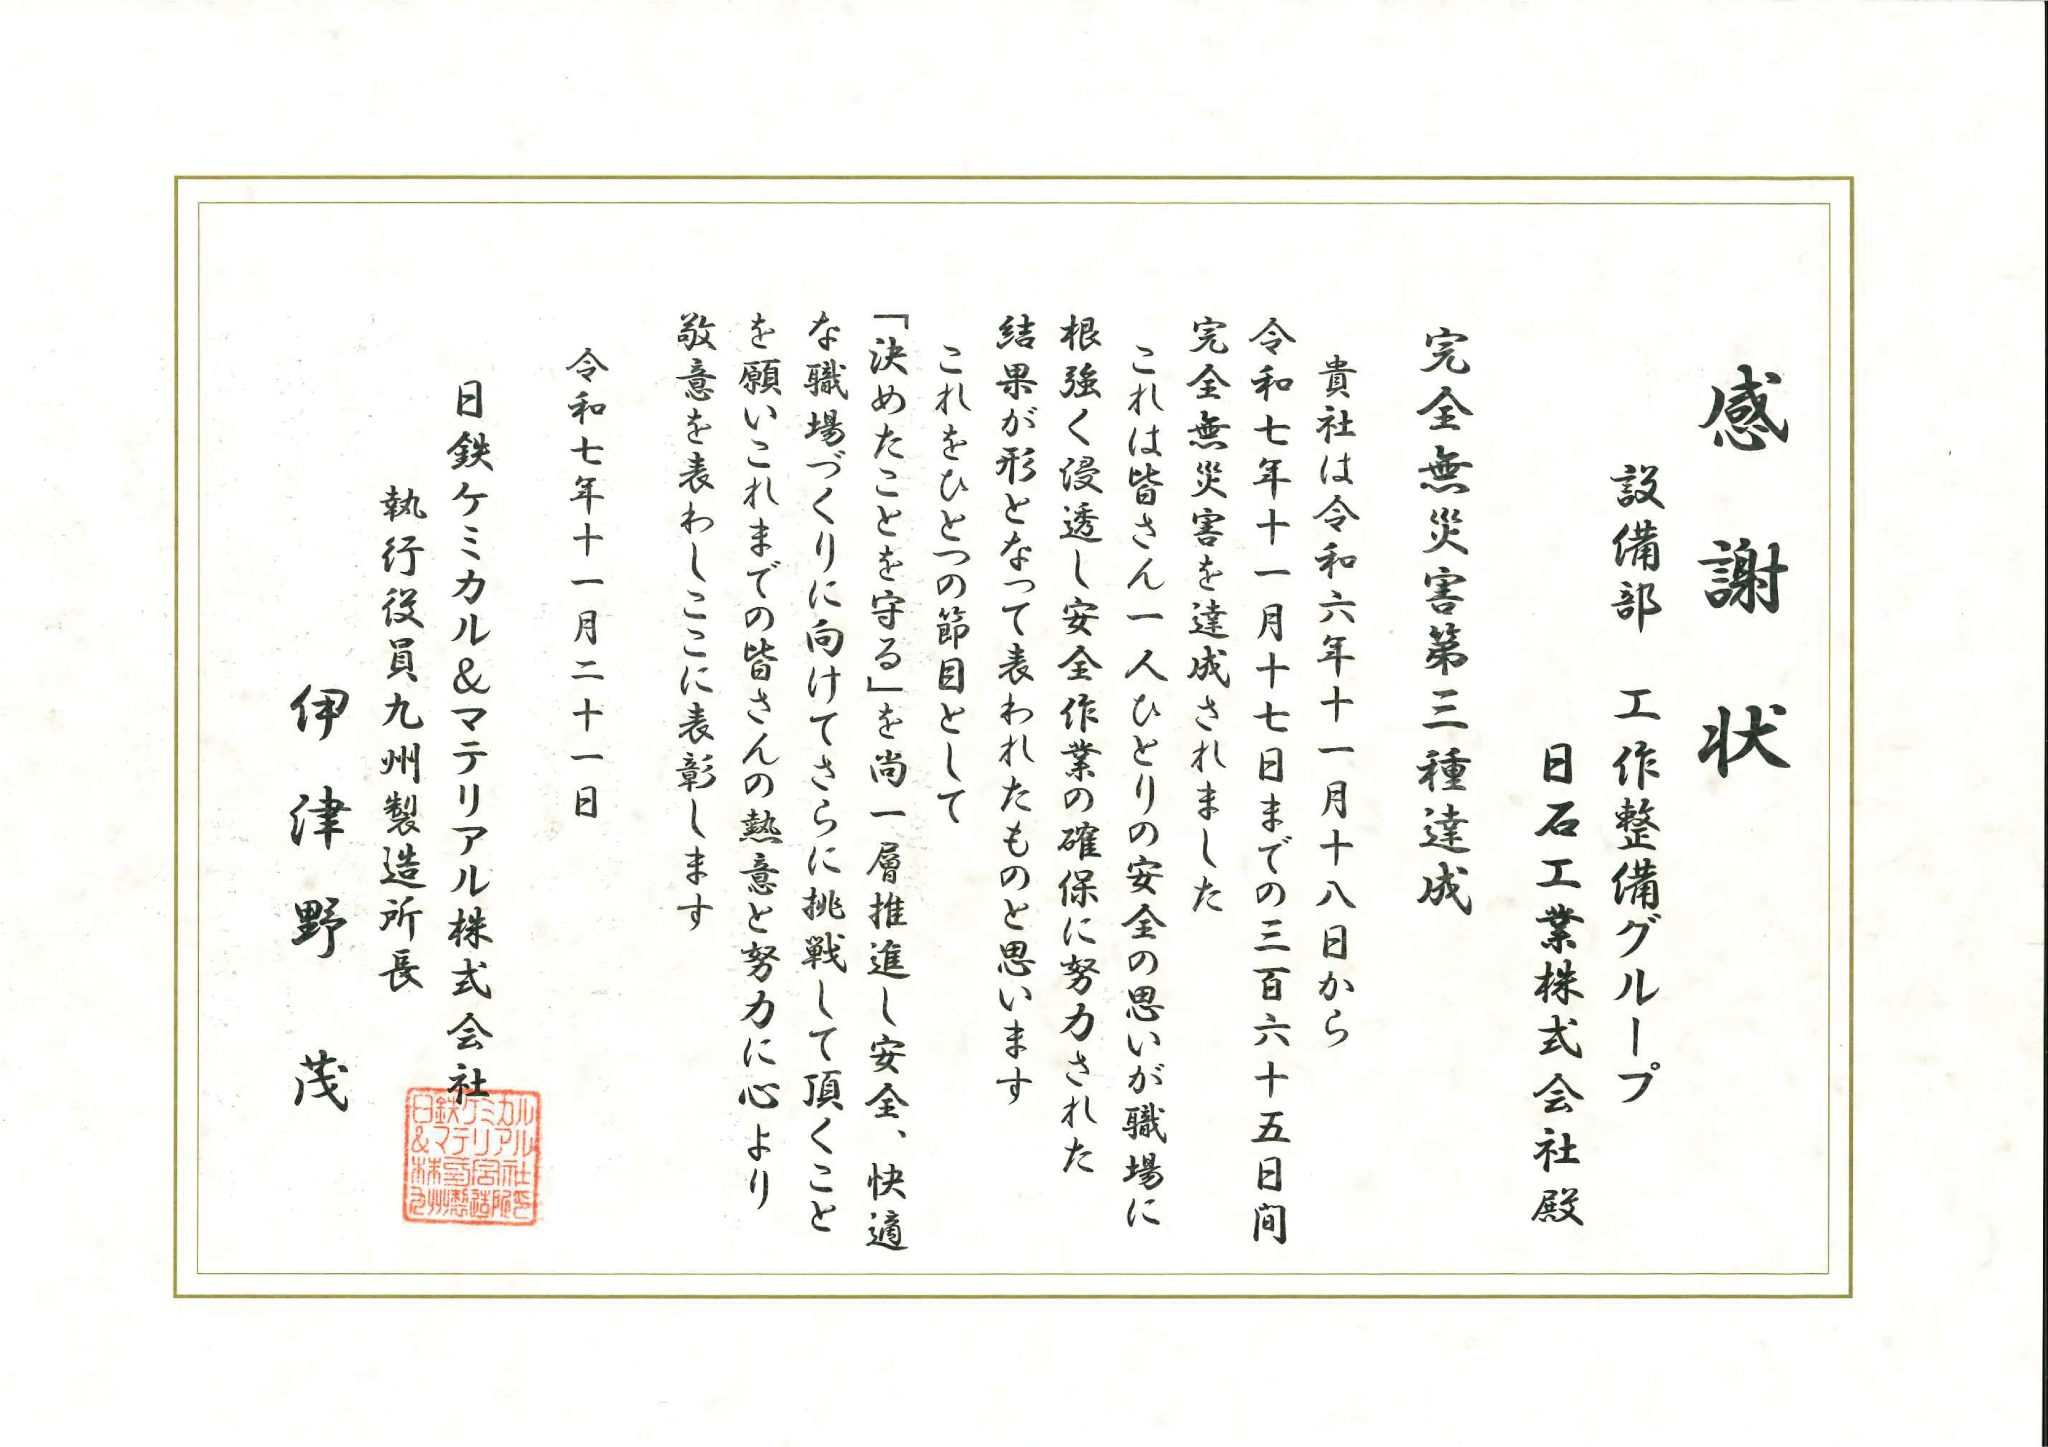 感謝状
設備部　工作整備グループ
日石工業株式会社殿
完全無災害第三種達成
貴社は令和六年十一月十八日から
令和七年十一月十七日までの三百六十五日間
完全無災害を達成されました
これは皆さん一人ひとりの安全の思いが職場に
根強く浸透し安全作業の確保に努力された
結果が形となって表われたものと思います
これをひとつの節目として
「決めたことを守る」を尚一層推進し安全、快適
な職場づくりに向けてさらに挑戦して頂くこと
を願いこれまでの皆さんの熱意と努力に心より
敬意を表わしここに表彰します
令和七年十一月二十一日
日鉄ケミカル&マテリアル株式会社
執行役員九州製造所長
伊津野　茂
日鉄ケミカル
&マテリアル
株式会社
九州製造所印